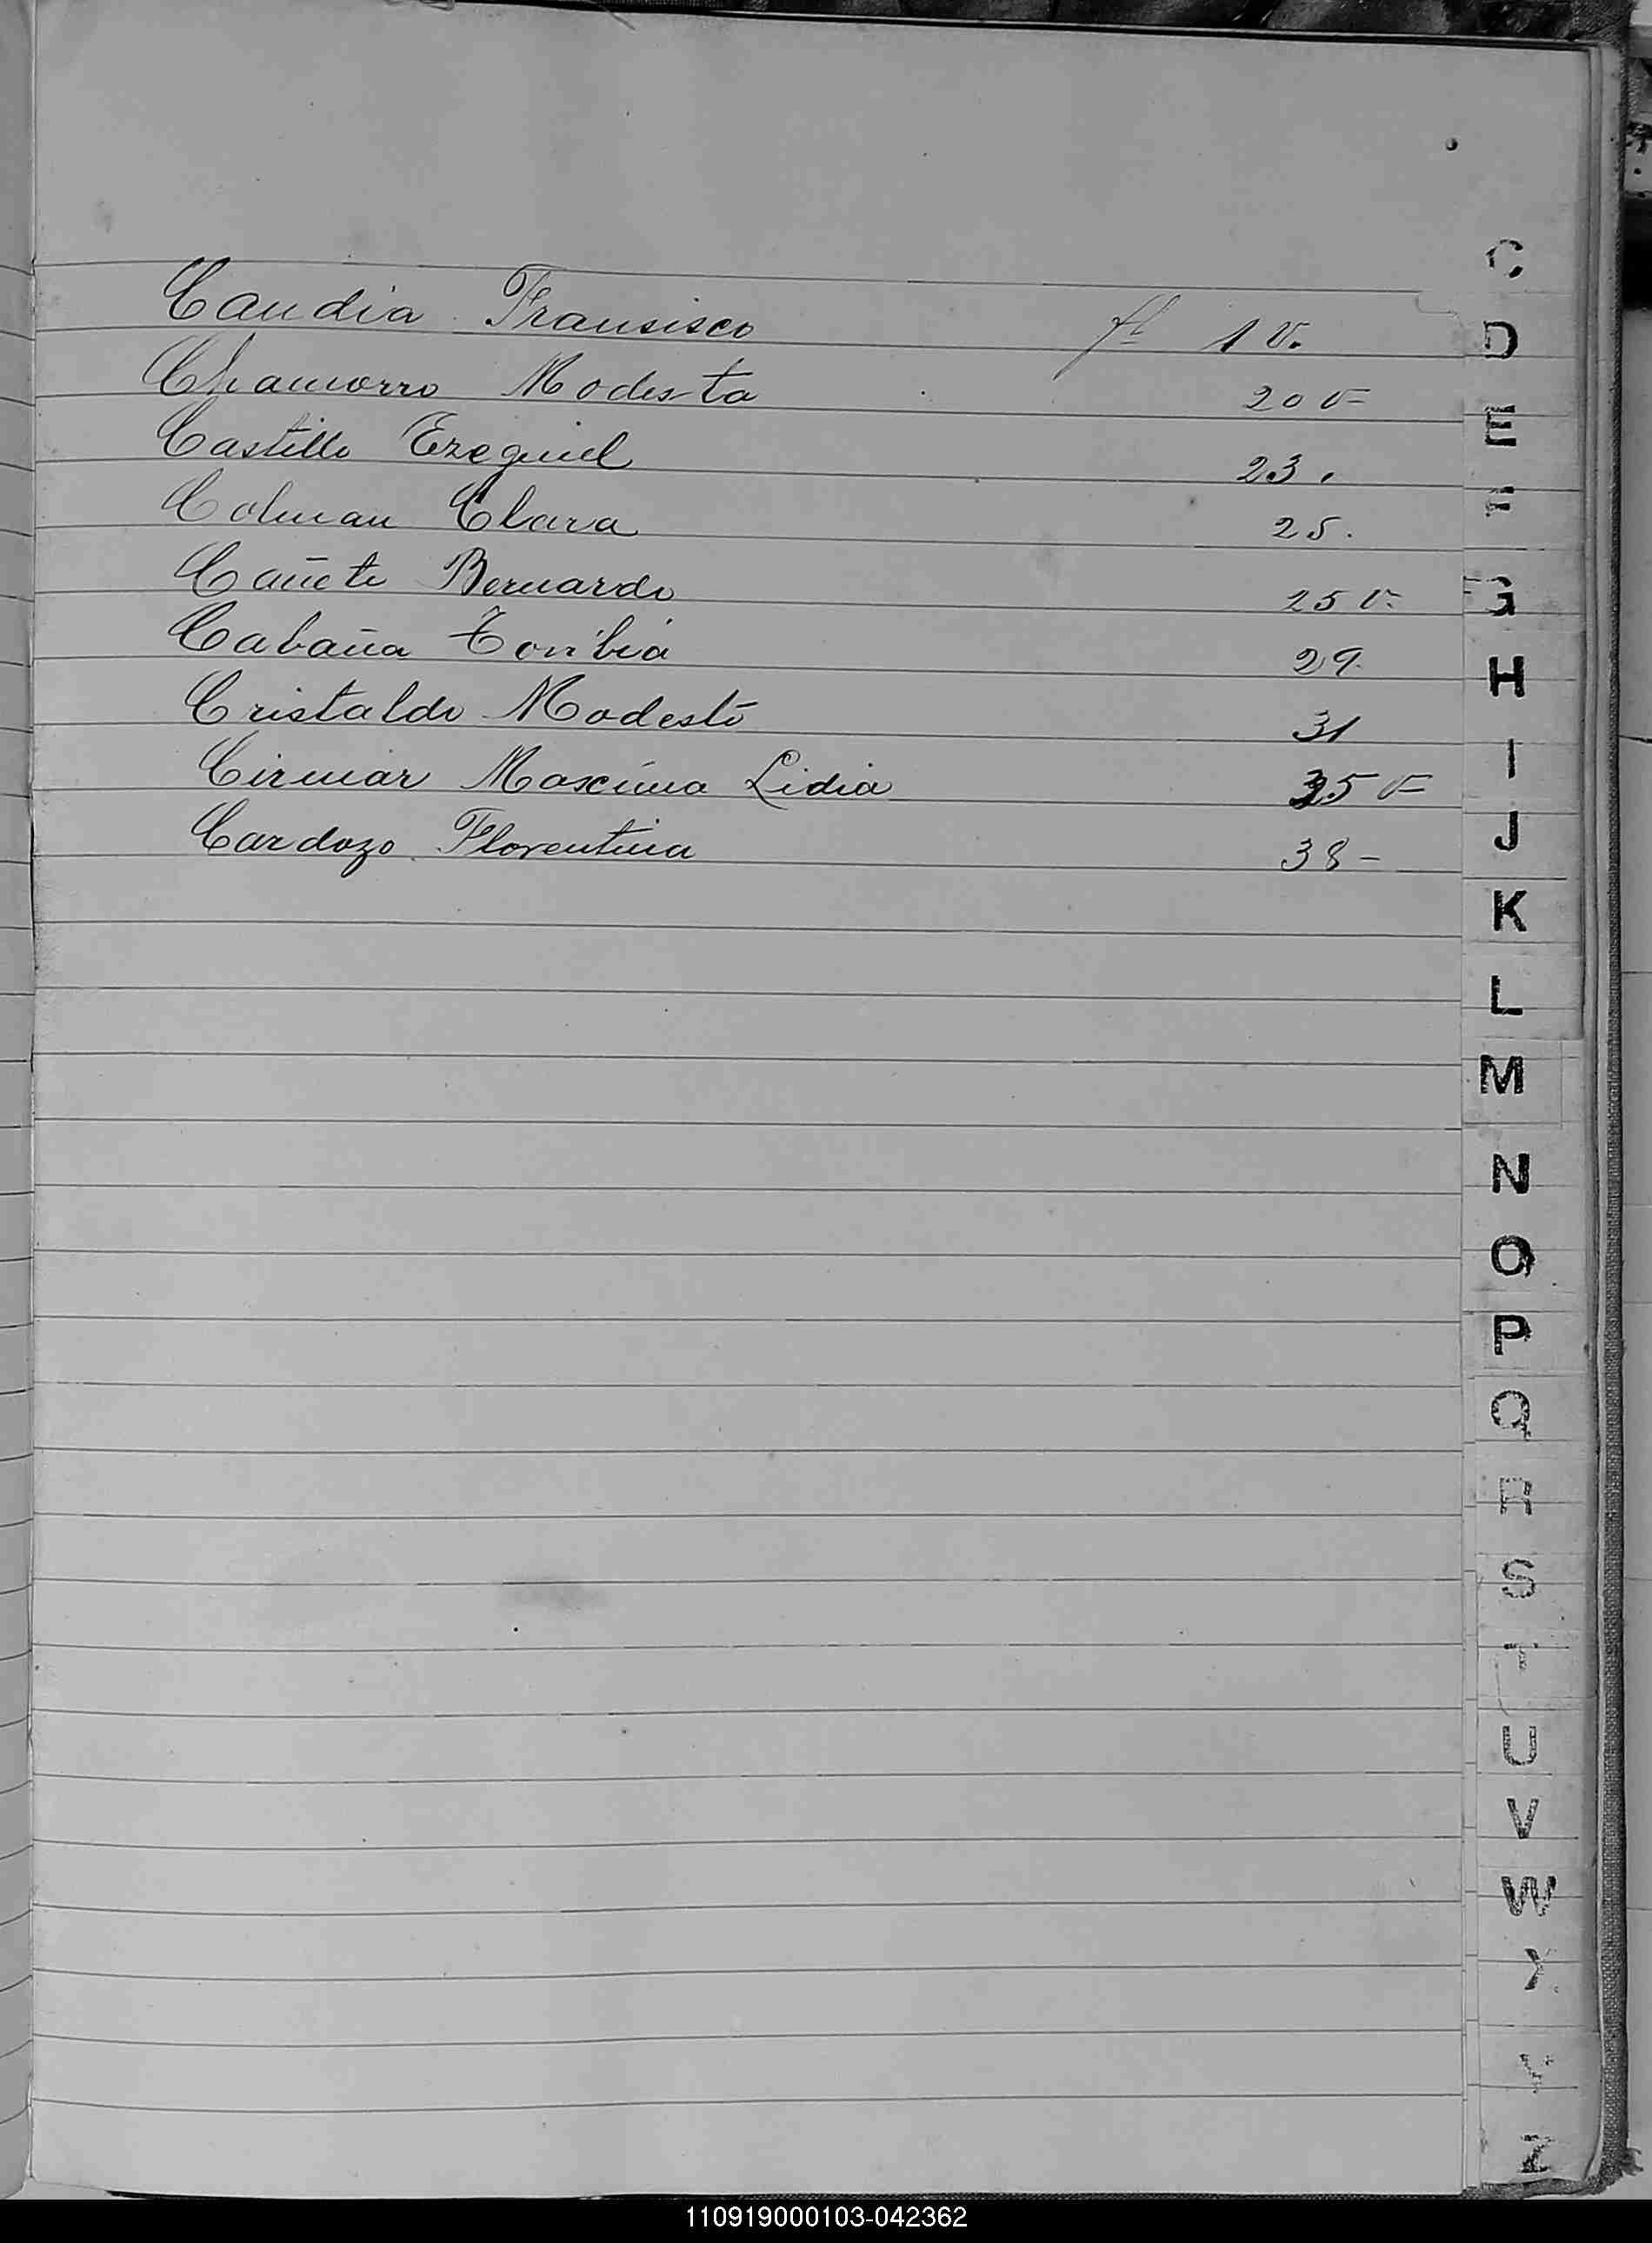 Candia Fransisco fl 1 v.
Chamorro Modesta 20 v
Castillo Ezequiel 23.
Colman Clara 25.
Cañete Bernardo 25 v.
Cabaña Toribia 29.
Cristaldo Modesto 31
Cirmar Maxima Lidia 35 v
Cardozo Florentina 38 -
C
D
E
F
G
H
I
J
K
L
M
N
O
P
Q
R
S
T
U
V
W
X
Y
Z
110919000103-042362